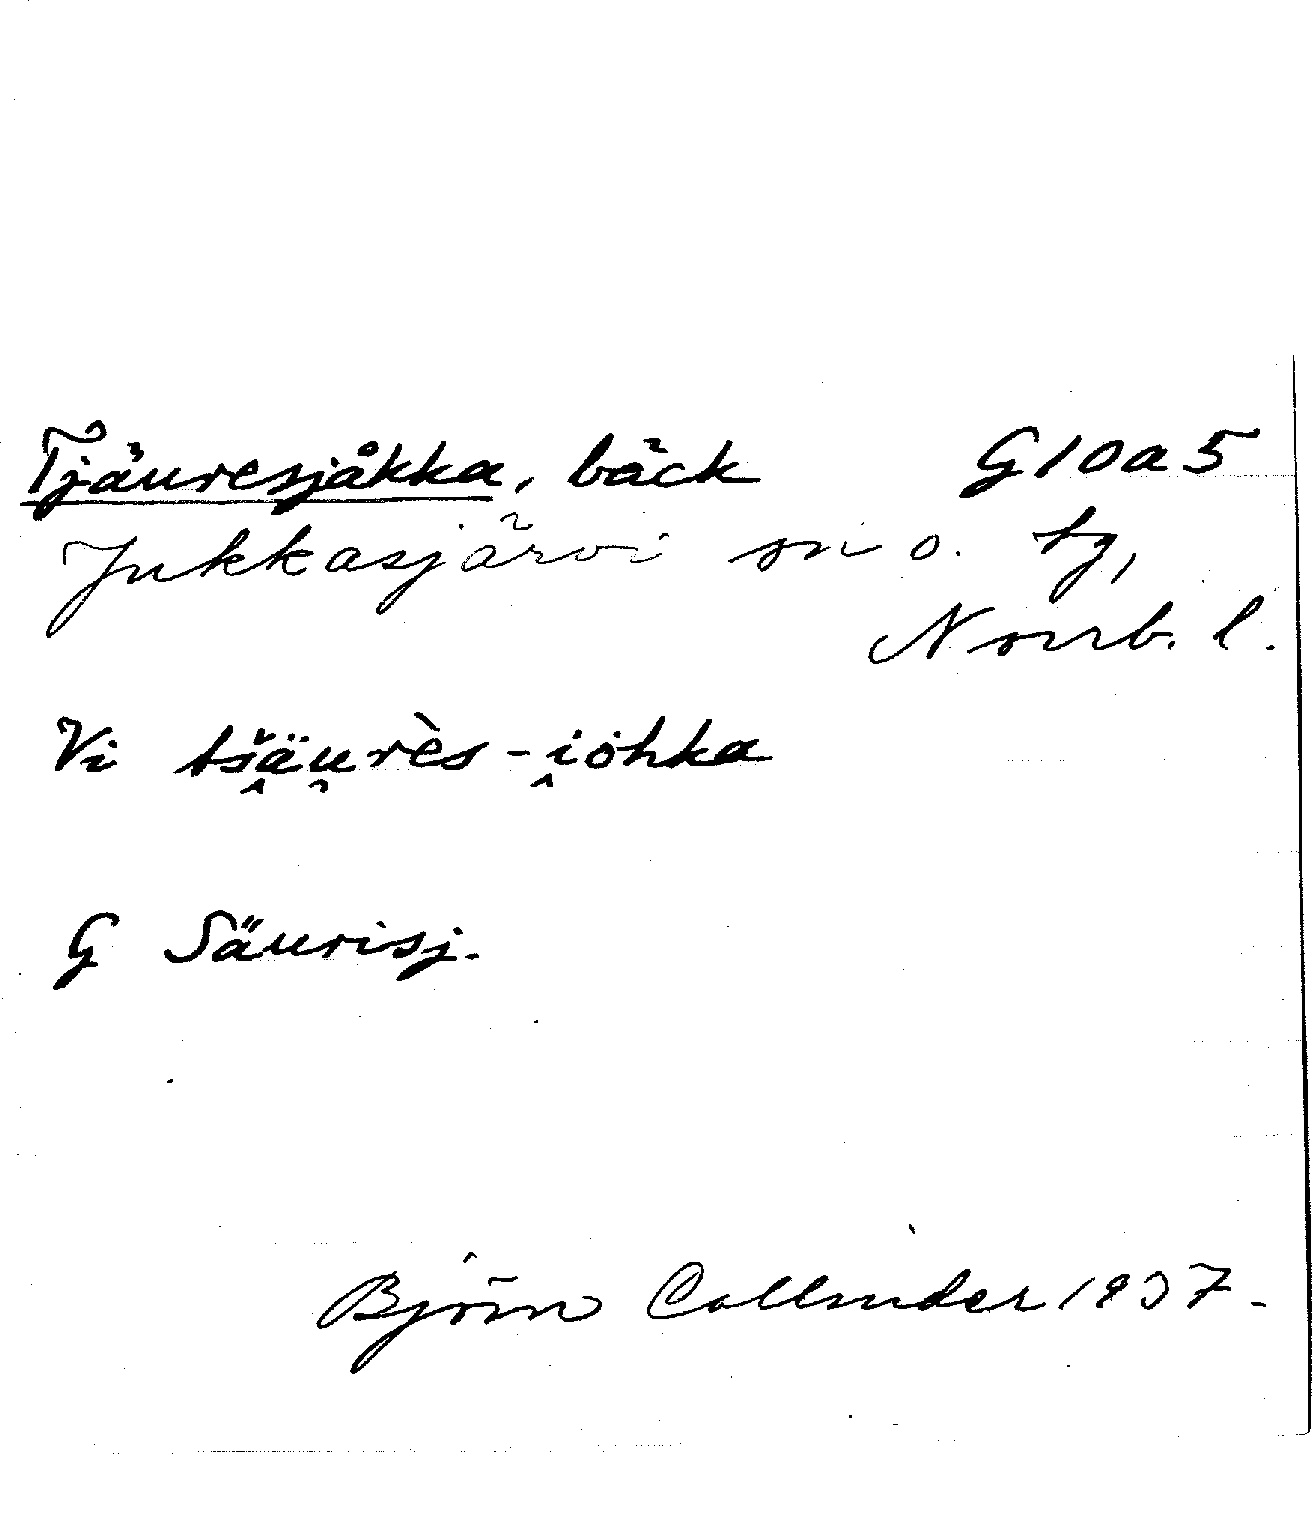 Tjäuresjåkka, bäck G10a5
Jukkasjärvi sn o. tg,
Norrb. l.
Vi tš̭äu̯rès-i̭ohka
G Säurisj.
Björn Collinder 1937.